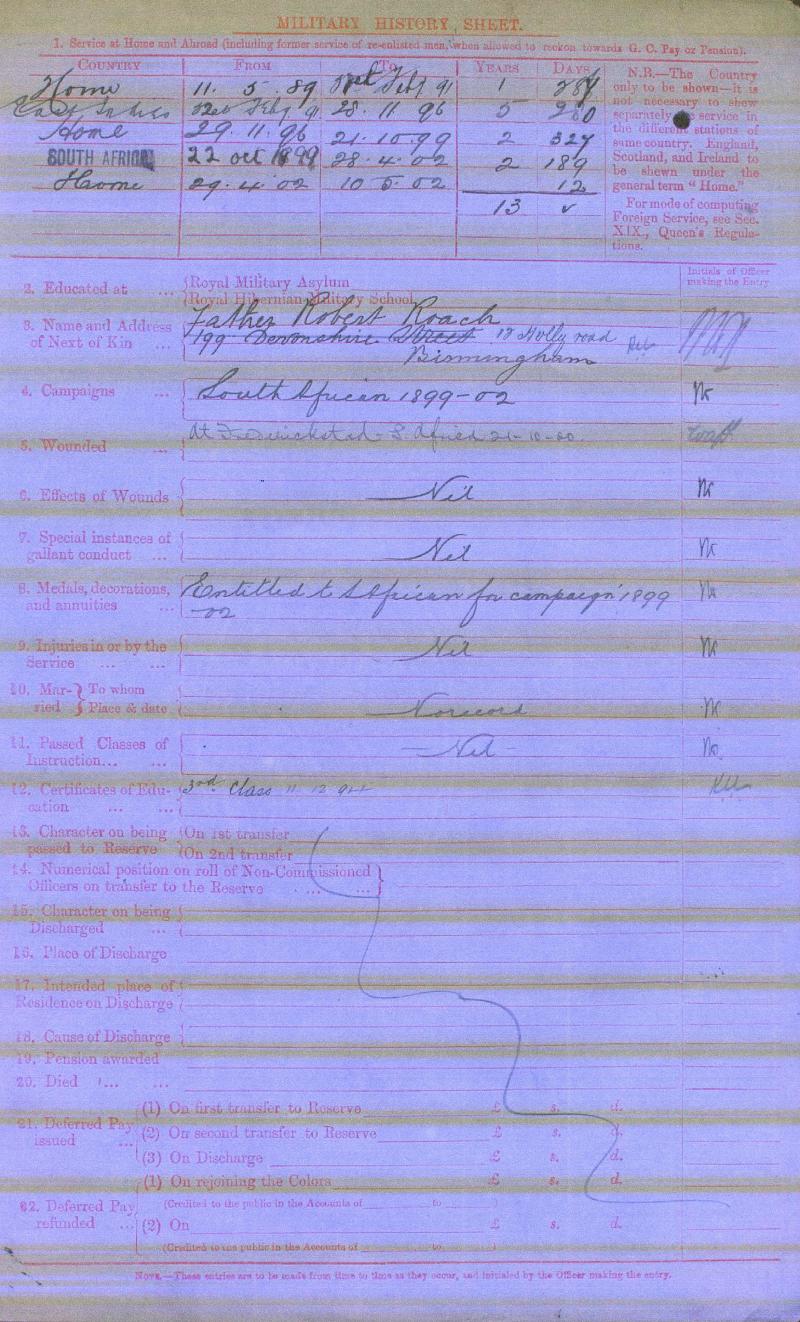 MILITARY HISTORY SHEET.
1. Service at Home and Abroad (including former service of re-enlisted men, when allowed to reckon towards G. C. Pay or Pension).
COUNTRY FROM TO YEARS DAYS
Home 11. 5. 89 Feby 91 1
East Indies Feby 91 28. 11 96 5 280
Home 29. 11. 96 21. 10. 99 2 327
SOUTH AFRICA 22 oct 1899 28. 4. 02 2 189
Home 29. 4. 02 10 5. 02 12
13 ✓
N.B.—The Country
only to be shown—it is
not necessary to show
separately service in
the different stations of
same country. England,
Scotland, and Ireland to
be shown under the
general term "Home."
For mode of computing
Foreign Service, see Sec.
XIX., Queen's Regula-
tions.
Initials of Officer
making the Entry
2. Educated at ... Royal Military Asylum
Royal Hibernian Military School
3. Name and Address
of Next of Kin ...
Father Robert Roach
199 Devonshire Street 18 Holly road
Birmingham
4. Campaigns ... South African 1899-02
5. Wounded ... At Frederickstad S. Africa 21-10-00
6. Effects of Wounds Nil
7. Special instances of
gallant conduct ... Nil
8. Medals, decorations,
and annuities ...
Entitled to S African for campaign 1899
-02
9. Injuries in or by the
Service ... ... Nil
10. Mar- To whom
ried Place & date No record
11. Passed Classes of
Instruction... ... Nil
12. Certificates of Edu-
cation ... ... 3rd Class 11 12 94
13. Character on being
passed to Reserve
On 1st transfer
On 2nd transfer
14. Numerical position on roll of Non-Commissioned
Officers on transfer to the Reserve ... ...
15. Character on being
Discharged ...
16. Place of Discharge
17. Intended place of
Residence on Discharge
18. Cause of Discharge
19. Pension awarded
20. Died ... ...
21. Deferred Pay
issued ...
(1) On first transfer to Reserve £ s. d.
(2) On second transfer to Reserve £ s. d.
(3) On Discharge £ s. d.
22. Deferred Pay
refunded ...
(1) On rejoining the Colors £ s. d.
(Credited to the public in the Accounts of to )
(2) On £ s. d.
(Credited to the public in the Accounts of to )
NOTE.—These entries are to be made from time to time as they occur, and initialed by the Officer making the entry.